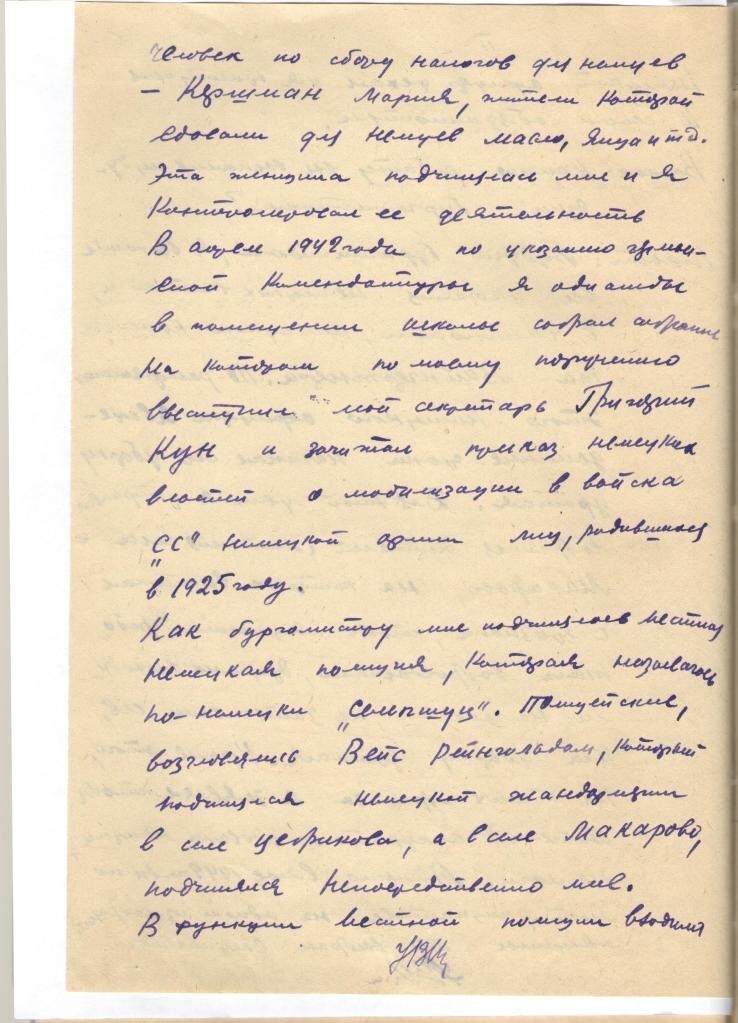 человек по сбору налогов для немцев
– Кершман Мария, жители которой
сдавали для немцев масло, яица и т.д.
Эта женщина подчинялась мне и я
контролировал ее деятельность
В апреле 1942 года по указанию немец-
ской комендатуры я однажды
в помещении школы собрал собрание
на котором по моему поручению
выступил мой секретарь Григорий
Кун и зачитал приказ немецких
властей о мобилизации в войска
"СС" немецкой армии лиц, родившихся
в 1925 году.
Как бургамистру мне подчинялась местная
немецкая полиция, которая называлась
по-немецки "сельпшуц". Полицейские,
возглавлялись Вейс Рейнгольдом, который
подчинялся немецкой жандармерии
в селе Цебриково, а в селе Макарово,
подчинялся непосредственно мне.
В функции местной полиции входило